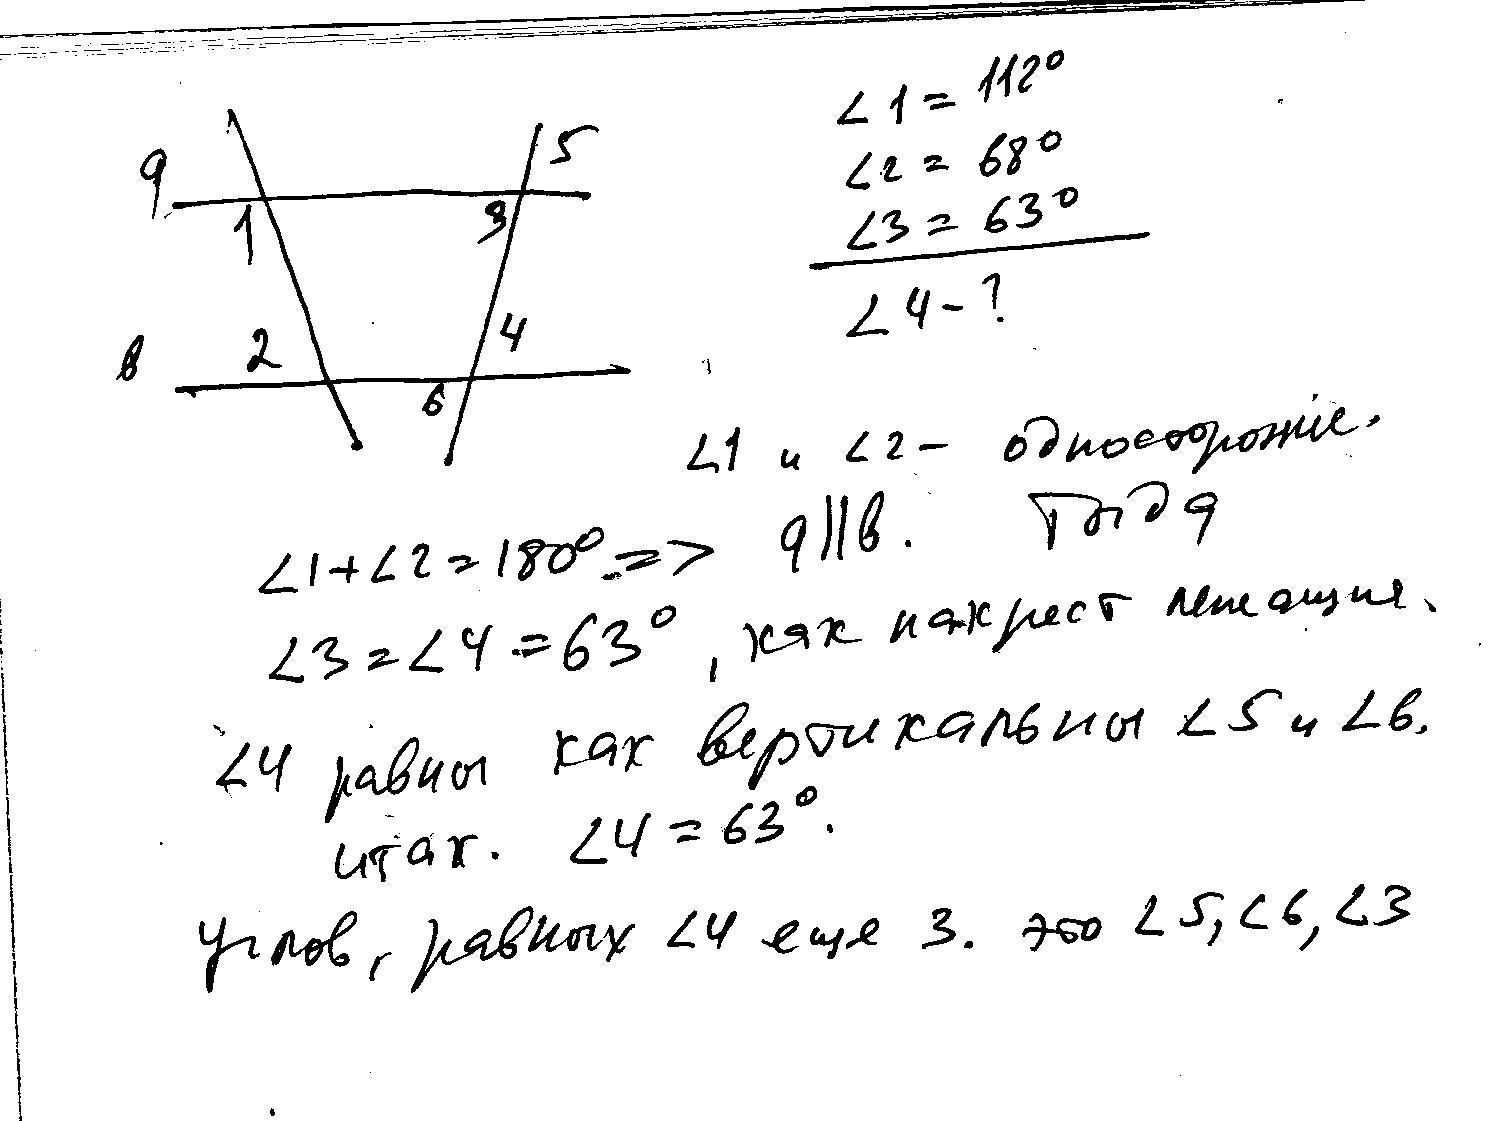 a
1
3
5
в
2
4
6
∠1 = 112°
∠2 = 68°
∠3 = 63°
∠4 - ?
∠1 и ∠2 - односторожние.
∠1+∠2=180° => a||в. Тогда
∠3=∠4=63°, как накрест лежащие.
∠4 равны как вертикальны ∠5 и ∠6.
итак. ∠4=63°.
Углов, равных ∠4 еще 3. это ∠5, ∠6, ∠3